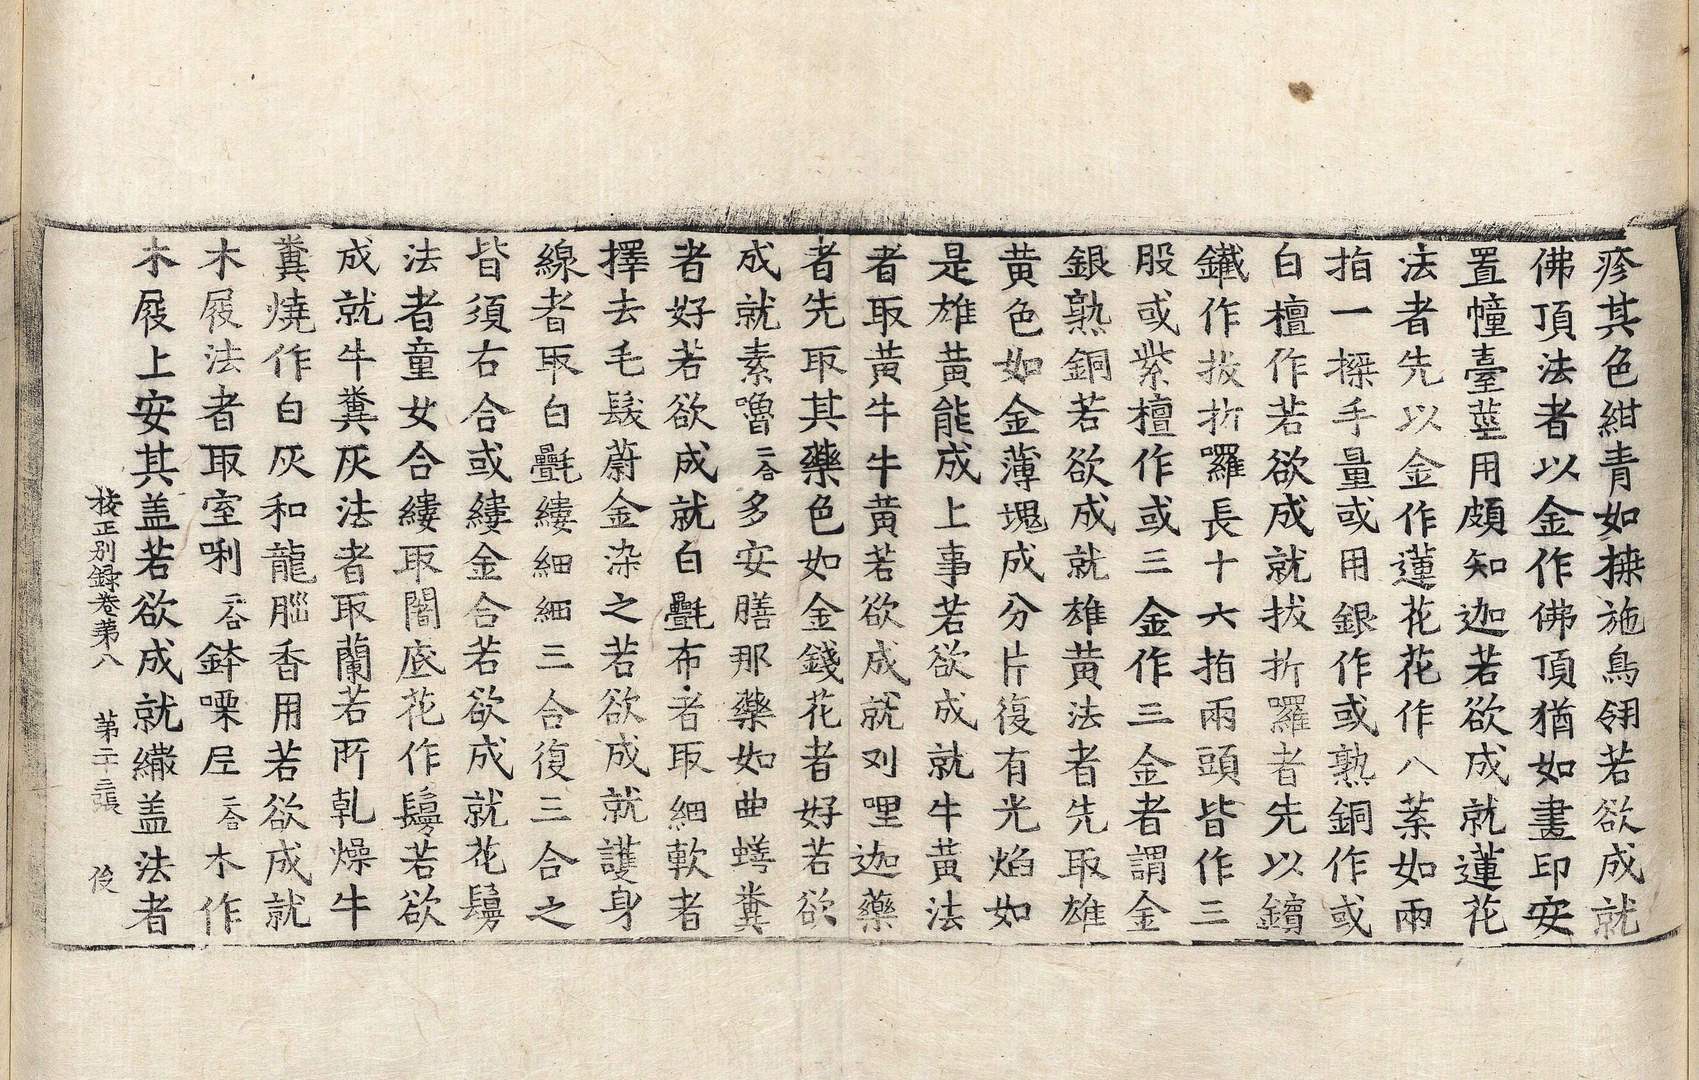 疹其色紺青如揀施鳥翎若欲成就
佛頂法者以金作佛頂猶如畫印安
置幢臺莖用頗知迦若欲成就蓮花
法者先以金作蓮花花作八葉如兩
拍一搩手量或用銀作或熟銅作或
白檀作若欲成就拔折囉者先以鑌
鐵作拔折囉長十六指兩頭皆作三
股或紫檀作或三金作三金者謂金
銀熟銅若欲成就雄黃法者先取雄
黃色如金薄塊成分片復有光焰如
是雄黃能成上事若欲成就牛黃法
者取黃牛牛黃若欲成就刈哩迦藥
者先取其藥色如金錢花者好若欲
成就素嚕二合多安膳那藥如曲蟮糞
者好若欲成就白㲲布者取細軟者
擇去毛髮蔚金染之若欲成就護身
線者取白㲲縷細細三合復三合之
皆須右合或縷金合若欲成就花鬘
法者童女合縷取闍底花作鬘若欲
成就牛糞灰法者取蘭若所乹燥牛
糞燒作白灰和龍腦香用若欲成就
木屐法者取室唎二合鉢㗚𡰱二合木作
木屐上安其盖若欲成就繖盖法者
挍正別録卷第八　第二十三張　伇